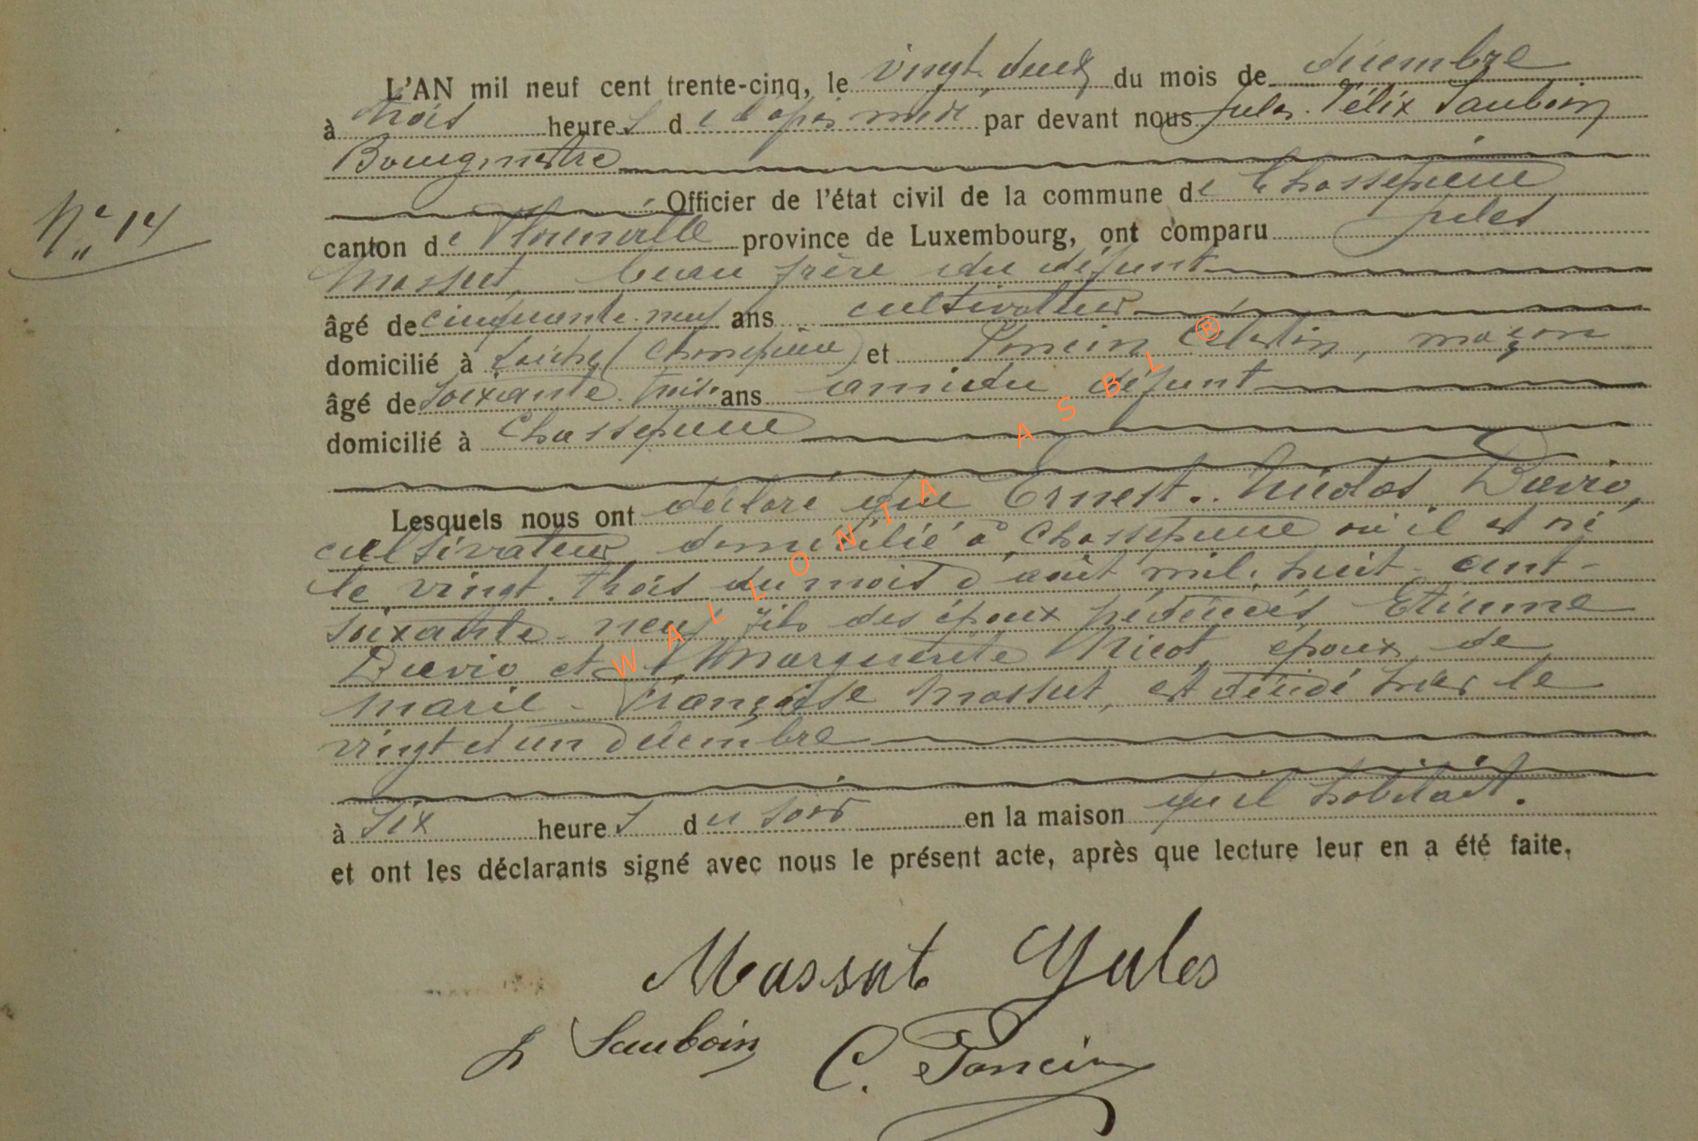 L'AN mil neuf cent trente-cinq, le vingt-deux du mois de décembre
à trois heures de l'après midi par devant nous Jules Félix Sauboin
Bourgmestre
Officier de l'état civil de la commune de Chassepierre
N° 14
canton de Florenville province de Luxembourg, ont comparu Jules
Massut, beau frère du défunt
âgé de cinquante-neuf ans cultivateur
domicilié à Laiche (Chassepierre) et Poncin Célestin, maçon
âgé de soixante trois ans ami du défunt
domicilié à Chassepierre
Lesquels nous ont déclaré que Ernest. Nicolas Davio,
cultivateur domicilié à Chassepierre où il est né
le vingt-trois du mois d'août mil huit-cent-
soixante-neuf fils des époux prédécédés Etienne
Davio et Marguerite Nicot, époux de
Marie-Françoise Massut, est décédé hier le
vingt et un décembre
à six heures du soir en la maison qu'il habitait.
et ont les déclarants signé avec nous le présent acte, après que lecture leur en a été faite.
Massut Jules
J Sauboin C. Poncin
WALLONIA ASBL ®